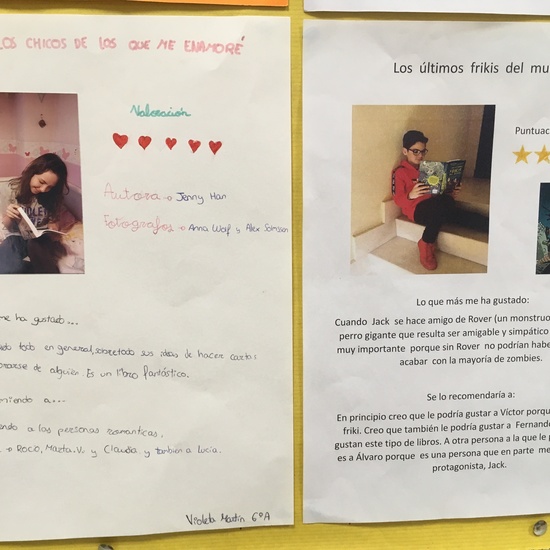 LOS CHICOS DE LOS QUE ME ENAMORÉ
Valoración
Autora → Jenny Han
Fotógrafos → Anna Wolf y Alex
me ha gustado...
todo en general, sobretodo sus ideas de hacer cartas
de alguien. Es un libro fantástico.
a...
a las personas romanticas.
→ Rocio, Marta.V. y Claudia y tambien a lucia.
Violeta Martín 6ºA
Los últimos frikis del mu
Puntuac
Lo que más me ha gustado:
Cuando Jack se hace amigo de Rover (un monstruo
perro gigante que resulta ser amigable y simpático
muy importante porque sin Rover no podrían habe
acabar con la mayoría de zombies.
Se lo recomendaría a:
En principio creo que le podría gustar a Víctor porqu
friki. Creo que también le podría gustar a Fernando
gustan este tipo de libros. A otra persona a la que le p
es a Álvaro porque es una persona que en parte me
protagonista, Jack.